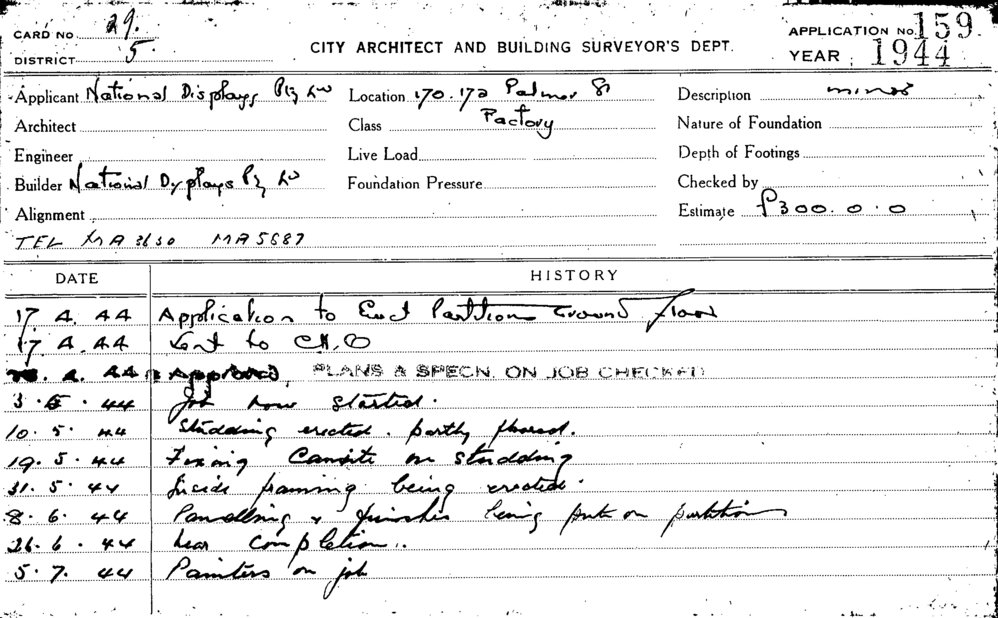 CARD No 29.
DISTRICT 5.
CITY ARCHITECT AND BUILDING SURVEYOR'S DEPT.
APPLICATION No. 159.
YEAR 1944
Applicant National Displays Pty Ltd
Location 170.172 Palmer St
Description minor
Architect
Class Factory
Nature of Foundation
Engineer
Live Load
Depth of Footings
Builder National Displays Pty Ltd
Foundation Pressure
Checked by
Alignment
Estimate £300.0.0
TEL MA3630 MA5687
DATE HISTORY
17 4. 44 Application to Erect Partitions Ground floor
17 4. 44 Sent to C.H.O
4. 44 Approved. PLANS & SPECN. ON JOB CHECKED
3.5.44 Job now started.
10.5.44 Studding erected. partly floored.
19.5.44 Fixing Caneite on studding
31.5.44 Inside framing being erected.
8.6.44 Panelling & finishes being put on partition
26.6.44 Near completion.
5.7.44 Painters on job